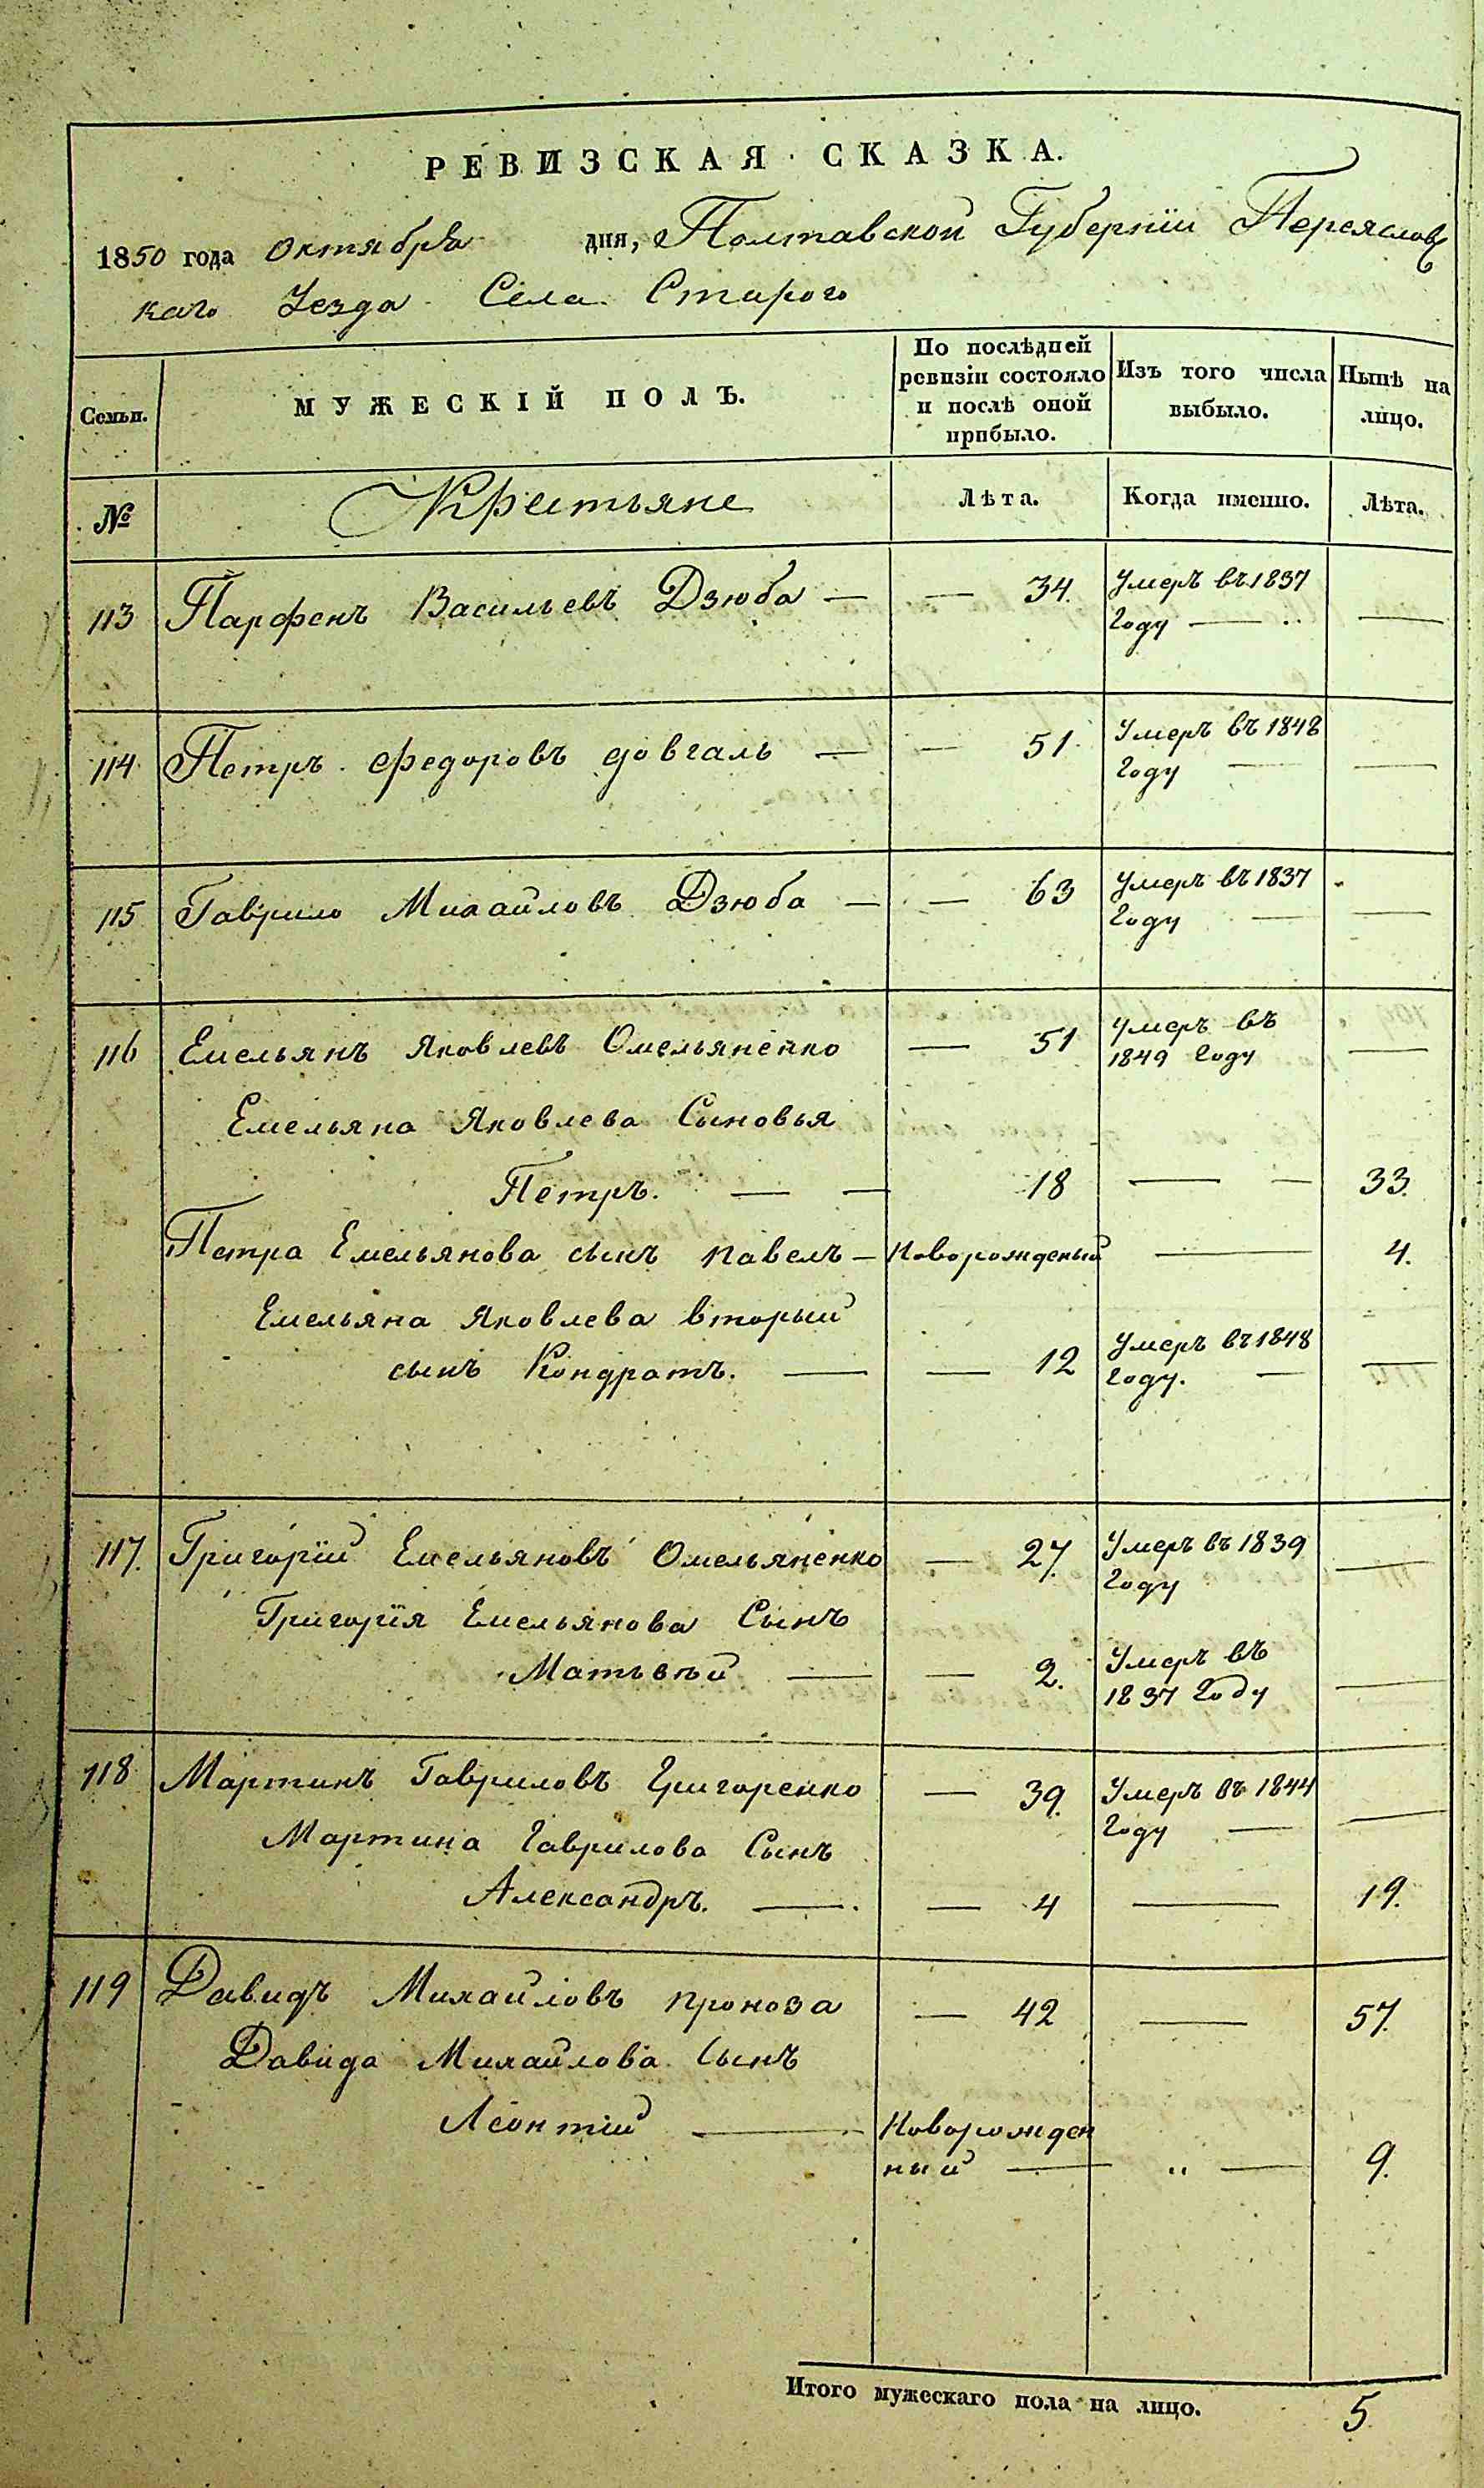 РЕВИЗСКАЯ СКАЗКА.
1850 года Октября дня, Полтавской Губернїи Переяслов
каго Уезда Села Старого
Семьи.
МУЖЕСКІЙ ПОЛЪ.
По послѣдней
ревизіи состояло
и послѣ оной
прибыло.
Изъ того числа
выбыло.
Нынѣ на
лицо.
№
Крестьяне
Лѣта.
Когда именно.
Лѣта.
113 Парфенъ Васильевъ Дзюба — — 34. Умеръ въ 1837
Году — —
114 Петръ Федоровъ Довгаль — — 51 Умеръ въ 1848
Году — —
115 Гаврило Михайловъ Дзюба — — 63 Умеръ въ 1837
Году — —
116 Емельянъ Яковлевъ Омельяненко — 51 Умеръ въ
1849 Году —
Емельяна Яковлева Сыновья
Петръ. — — 18 — — 33.
Петра Емельянова сынъ Павелъ — Новорожденый — 4.
Емельяна Яковлева вторый
сынъ Кондратъ. — — 12 Умеръ въ 1848
Году. — —
117. Григорїй Емельяновъ Омельяненко — 27. Умеръ въ 1839
Году —
Григорїя Емельянова Сынъ
Матьвѣй — — 2. Умеръ въ
1837 Году —
118 Мартинъ Гавриловъ Григоренко — 39. Умеръ въ 1844
Году — —
Мартина Гаврилова Сынъ
Александръ. — — 4 — 19.
119 Давидъ Михайловъ Проноза — 42 — 57.
Давида Михайлова Сынъ
Леонтій — Новорожден
ный — „ — 9.
Итого мужескаго пола на лицо. 5